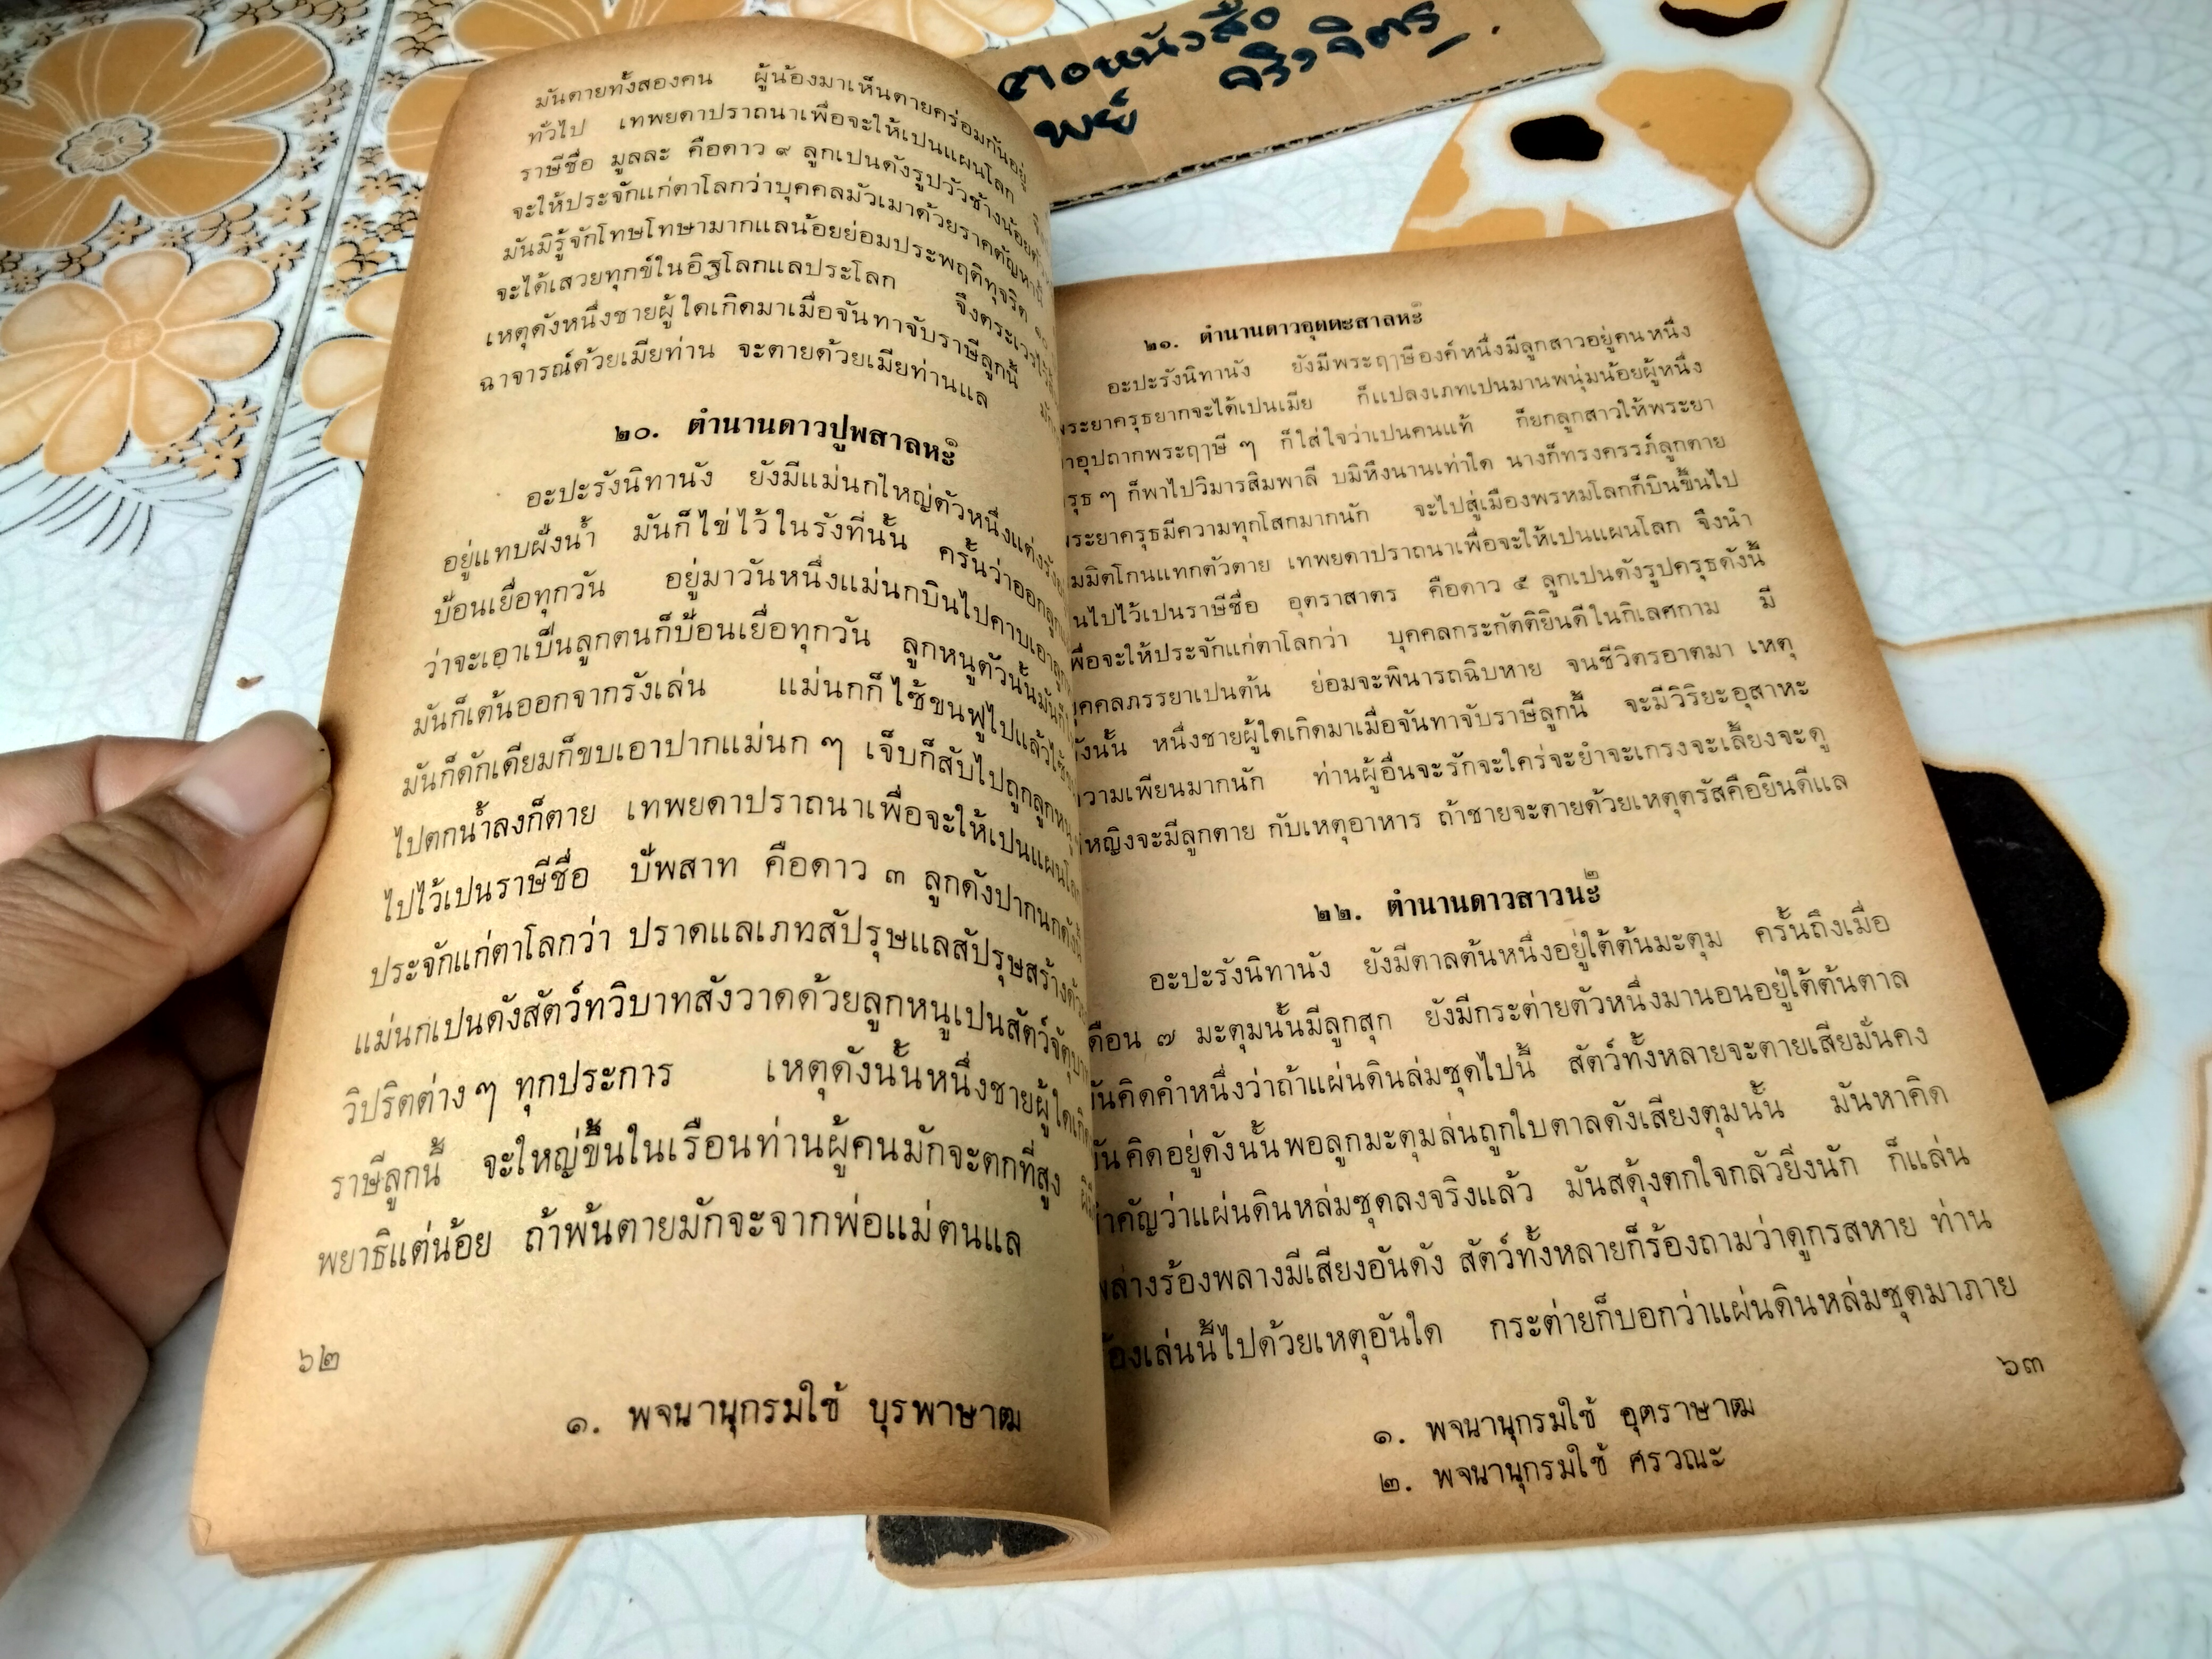 มันตายทั้งสองคน ผู้น้องมาเห็นตายคร่อมกันอยู่
ทั่วไป เทพยดาปราถนาเพื่อจะให้เปนแผนโลก
ราษีชื่อ มูลละ คือดาว ๙ ลูกเปนดังรูปวัวช้างน้อย
จะให้ประจักแก่ตาโลกว่าบุคคลมัวเมาด้วยราคตัญหา
มันมิรู้จักโทษโทษามากแลน้อยย่อมประพฤติทุจริต
จะได้เสวยทุกข์ในอิฐโลกแลประโลก จึงตระเวร
เหตุดังหนึ่งชายผู้ใดเกิดมาเมื่อจันทาจับราษีลูกนี้
ฉาจารณ์ด้วยเมียท่าน จะตายด้วยเมียท่านแล
๒๐. ตำนานดาวปูพสาลหะ๑
อะปะรังนิทานัง ยังมีแม่นกใหญ่ตัวหนึ่งแต่งรัง
อยู่แทบฝั่งน้ำ มันก็ไข่ไว้ในรังที่นั้น ครั้นว่าออกลูก
บ้อนเยื่อทุกวัน อยู่มาวันหนึ่งแม่นกบินไปคาบเอาลูก
ว่าจะเอาเป็นลูกตนก็บ้อนเยื่อทุกวัน ลูกหนูตัวนั้นมันก็
มันก็เต้นออกจากรังเล่น แม่นกก็ไซ้ขนฟูไปแล้ว
มันก็ดักเดียมก็ขบเอาปากแม่นก ๆ เจ็บก็สับไปถูกลูกหนู
ไปตกน้ำลงก็ตาย เทพยดาปราถนาเพื่อจะให้เปนแผน
ไปไว้เปนราษีชื่อ บัพสาท คือดาว ๓ ลูกดังปากนกดังนี้
ประจักแก่ตาโลกว่า ปราดแลเภทสัปรุษแลสัปรุษสร้าง
แม่นกเปนดังสัตว์ทวิบาทสังวาดด้วยลูกหนูเปนสัตว์จัตุบาท
วิปริตต่าง ๆ ทุกประการ เหตุดังนั้นหนึ่งชายผู้ใดเกิด
ราษีลูกนี้ จะใหญ่ขึ้นในเรือนท่านผู้คนมักจะตกที่สูง
พยาธิแต่น้อย ถ้าพ้นตายมักจะจากพ่อแม่ตนแล
๖๒
๑. พจนานุกรมใช้ บุรพาษาฒ
๒๑. ตำนานดาวอุตตะสาลหะ๑
อะปะรังนิทานัง ยังมีพระฤๅษีองค์หนึ่งมีลูกสาวอยู่คนหนึ่ง
พระยาครุธยากจะได้เปนเมีย ก็แปลงเภทเปนมานพนุ่มน้อยผู้หนึ่ง
อุปถากพระฤๅษี ๆ ก็ใส่ใจว่าเปนคนแท้ ก็ยกลูกสาวให้พระยา
ครุธ ๆ ก็พาไปวิมารสิมพาลี บมิหึงนานเท่าใด นางก็ทรงครรภ์ลูกตาย
พระยาครุธมีความทุกโสกมากนัก จะไปสู่เมืองพรหมโลกก็บินขึ้นไป
แทกตัวตาย เทพยดาปราถนาเพื่อจะให้เปนแผนโลก จึงนำ
ไปไว้เปนราษีชื่อ อุตราสาตร คือดาว ๕ ลูกเปนดังรูปครุธดังนี้
เพื่อจะให้ประจักแก่ตาโลกว่า บุคคลกระกัตติยินดีในกิเลศกาม มี
บุคคลภรรยาเปนต้น ย่อมจะพินารถฉิบหาย จนชีวิตรอาตมา เหตุ
ดังนั้น หนึ่งชายผู้ใดเกิดมาเมื่อจันทาจับราษีลูกนี้ จะมีวิริยะอุสาหะ
ความเพียนมากนัก ท่านผู้อื่นจะรักจะใคร่จะยำจะเกรงจะเลี้ยงจะดู
หญิงจะมีลูกตาย กับเหตุอาหาร ถ้าชายจะตายด้วยเหตุตรัสคือยินดีแล
๒๒. ตำนานดาวสาวนะ๒
อะปะรังนิทานัง ยังมีตาลต้นหนึ่งอยู่ใต้ต้นมะตุม ครั้นถึงเมื่อ
เดือน ๗ มะตุมนั้นมีลูกสุก ยังมีกระต่ายตัวหนึ่งมานอนอยู่ใต้ต้นตาล
มันคิดคำหนึ่งว่าถ้าแผ่นดินล่มซุดไปนี้ สัตว์ทั้งหลายจะตายเสียมั่นคง
มันคิดอยู่ดังนั้นพอลูกมะตุมล่นถูกใบตาลดังเสียงตุมนั้น มันหาคิด
สำคัญว่าแผ่นดินหล่มซุดลงจริงแล้ว มันสดุ้งตกใจกลัวยิ่งนัก ก็แล่น
พล่างร้องพลางมีเสียงอันดัง สัตว์ทั้งหลายก็ร้องถามว่าดูกรสหาย ท่าน
ร้องเล่นนี้ไปด้วยเหตุอันใด กระต่ายก็บอกว่าแผ่นดินหล่มซุดมาภาย
๖๓
๑. พจนานุกรมใช้ อุตราษาฒ
๒. พจนานุกรมใช้ ศรวณะ